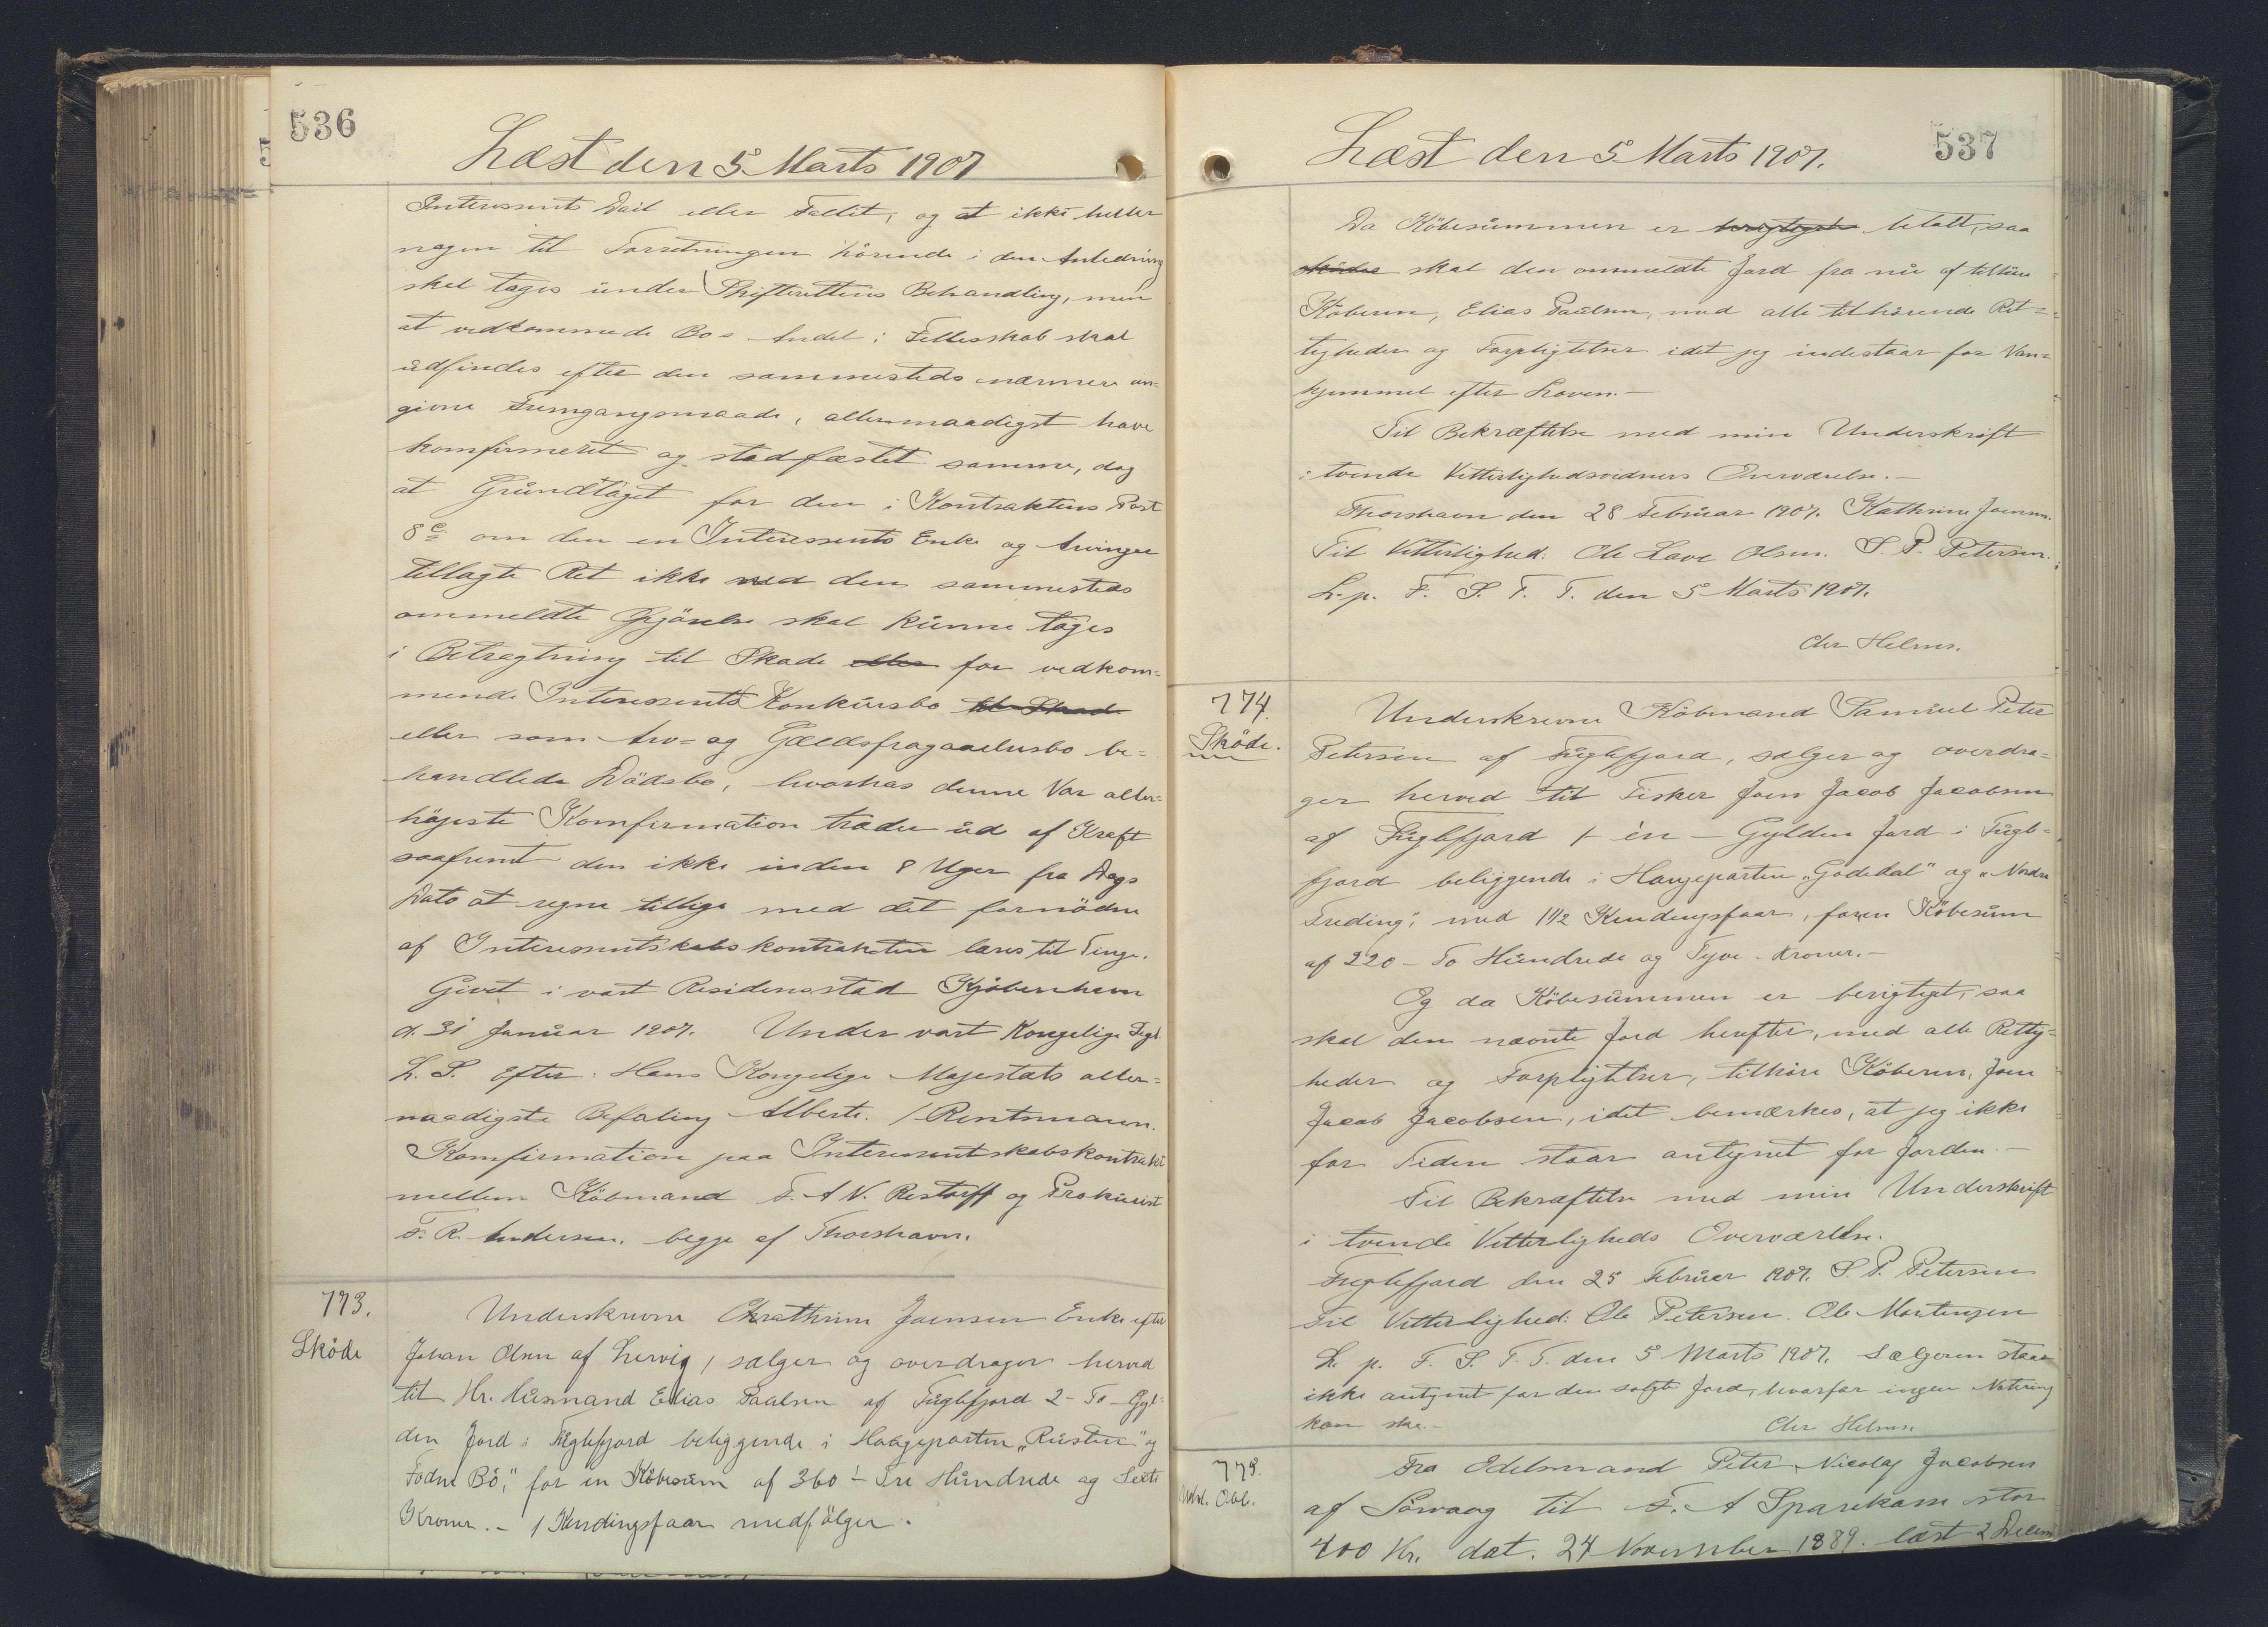 536
Læst den 5 Marts 1907
Interessents Død eller Fallit, og at ikke heller
nogen til Forretningen hørende i den Anledning
skal tages under Skifterettens Behandling, men
at vedkommende Bos Andel i Fellesskab skal
udfindes efter den sammesteds nærmere an-
givne Fremgangsmaade, allernaadigst have
komfirmeret og stadfæstet samme, dog
at Grundlaget for den i Kontraktens Post
8c om den en Interessents Enke og Arvinger
tillagte Ret ikke ved den sammesteds
ommeldte skal kunne tages
i Betragtning til Skade eller for vedkom-
mende Interessents Konkursbo til Skade
eller som Arv- og Gældsfragaaelsesbo be-
handlede Dödsbo, hvorhos denne Vor aller-
højeste Komfirmation træder ud af Kraft
saafremt den ikke inden 8 Uger fra Dags
Dato at regne tillige med det fornödne
af Interessentskabskontrakten læses til Tinge.
Givet i vort Residensstad Kjöbenhavn
d. 31 Januar 1907. Under vort Kongelige Segl
L. S. Efter Hans Kongelige Majestæts aller-
naadigste Befaling Alberti. / Rentzmann.
Komfirmation paa Interessentskabskontrakt
mellem Köbmand F. A V. Restorff og Prokurist
F. R. Andersen, begge af Thorshavn.
773.
Sköde
Underskrevne Kathrine Joensen Enke efter
Johan Olsen af Lervig, sælger og overdrager herved
til Hr. Husmand Elias Paalsen af Fuglefjord 2 - To - Gyl-
den Jord i Fuglefjord beliggende i Haugeparten „Rusten" og
Bö," for en Köbesum af 360 - Tre Hundrede og Sexti
Kroner. - 1 Kendingsfaar medfölger.
537
Læst den 5 Marts 1907.
Da Köbesummen er berigtiget betalt, saa
sködes skal den ommeldte Jord fra nu af tilhöre
Köberen, Elias Paalsen, med alle tilhörende Ret-
tigheder og Forpligtelser idet jeg indestaar for Van-
hjemmel efter Loven. -
Til Bekræftelse med min Underskrift
i tvende Vitterlighedsvidners Overværelse. -
Thorshavn den 28 Februar 1907. Kathrine Joensen.
Til Vitterlighed: Ole Lave Olsen. S. P. Petersen.
L. p. F. S. T. T. den 5 Marts 1907.
Chr Helms.
774.
Sköde.
Underskrevne Köbmand Samuel Peter
Petersen af Fuglefjord, sælger og overdra-
ger herved til Fisker Joen Jacob Jacobsen
af Fuglefjord 1 - én - Gylden Jord i Fugle-
fjord beliggende i Haugeparten „Gödedal" og „Nordre
Treding", med 1 1/2 Kendingsfaar, for en Köbesum
af 220 - To Hundrede og Tyve - Kroner. -
Og da Köbesummen er berigtiget, saa
skal den nævnte Jord herefter, med alle Rettig-
heder og Forpligtelser, tilhöre Köberen, Joen
Jacob Jacobsen, idet bemærkes, at jeg ikke
for Tiden staar antegnet for Jorden. -
Til Bekræftelse med min Underskrift
i tvende Vitterligheds Overværelse.
Fuglefjord den 25 Februar 1907. S. P. Petersen
Til Vitterlighed: Ole Petersen. Ole Mortensen
L. p. F. S. T. T. den 5 Marts 1907. Sælgeren staar
ikke antegnet for den solgte Jord, hvorfor ingen Notering
kan ske. - Chr Helms.
775.
Udsl. Obl.
Fra Odelsmand Peter Nicolaj Jacobsen
af Sörvaag til F. A Sparekasse stor
400 Kr. dat. 24 November 1889. læst 2 Decem